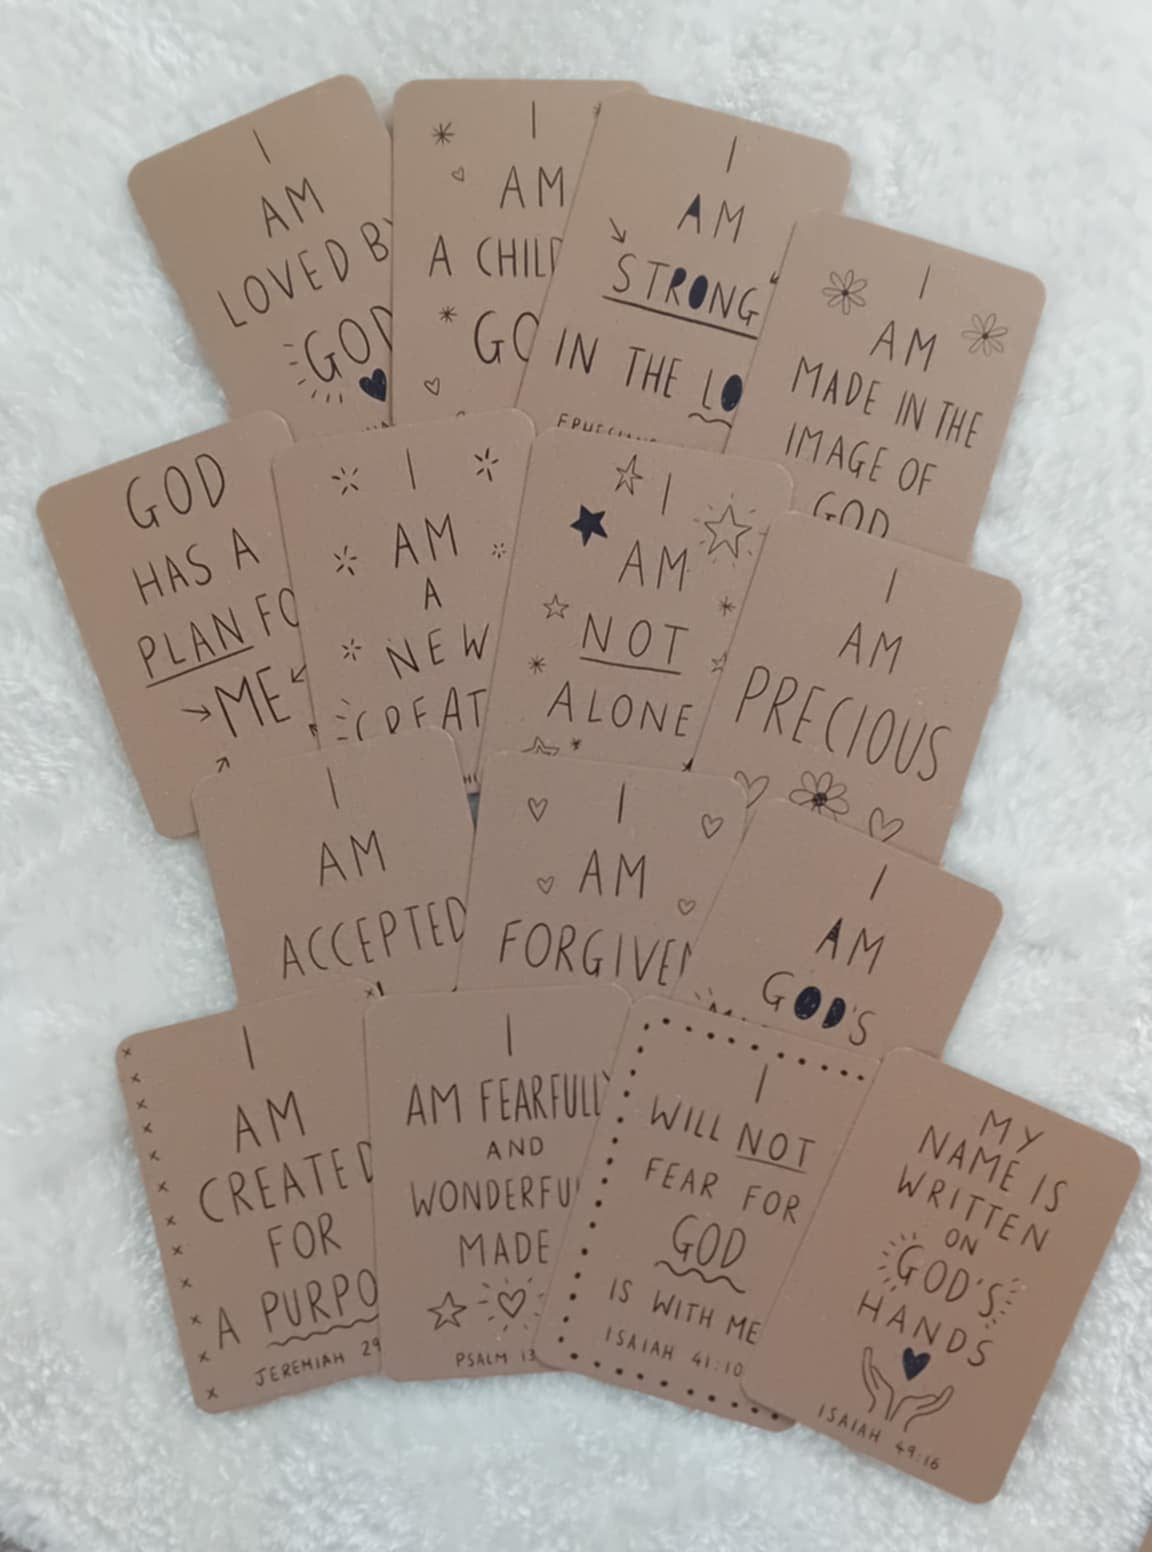 I
AM
LOVED BY
GOD
I
AM
A CHILD
GO
I
AM
STRONG
IN THE LO
I
AM
MADE IN THE
IMAGE OF
GOD
GOD
HAS A
PLAN FO
ME
I
AM
A
NEW
CREAT
I
AM
NOT
ALONE
I
AM
PRECIOUS
I
AM
ACCEPTED
I
AM
FORGIVEN
I
AM
GOD'S
I
AM
CREATED
FOR
A PURPO
JEREMIAH 29
I
AM FEARFULLY
AND
WONDERFU
MADE
PSALM 13
I
WILL NOT
FEAR FOR
GOD
IS WITH ME
ISAIAH 41:10
MY
NAME IS
WRITTEN
ON
GOD'S
HANDS
ISAIAH 49:16